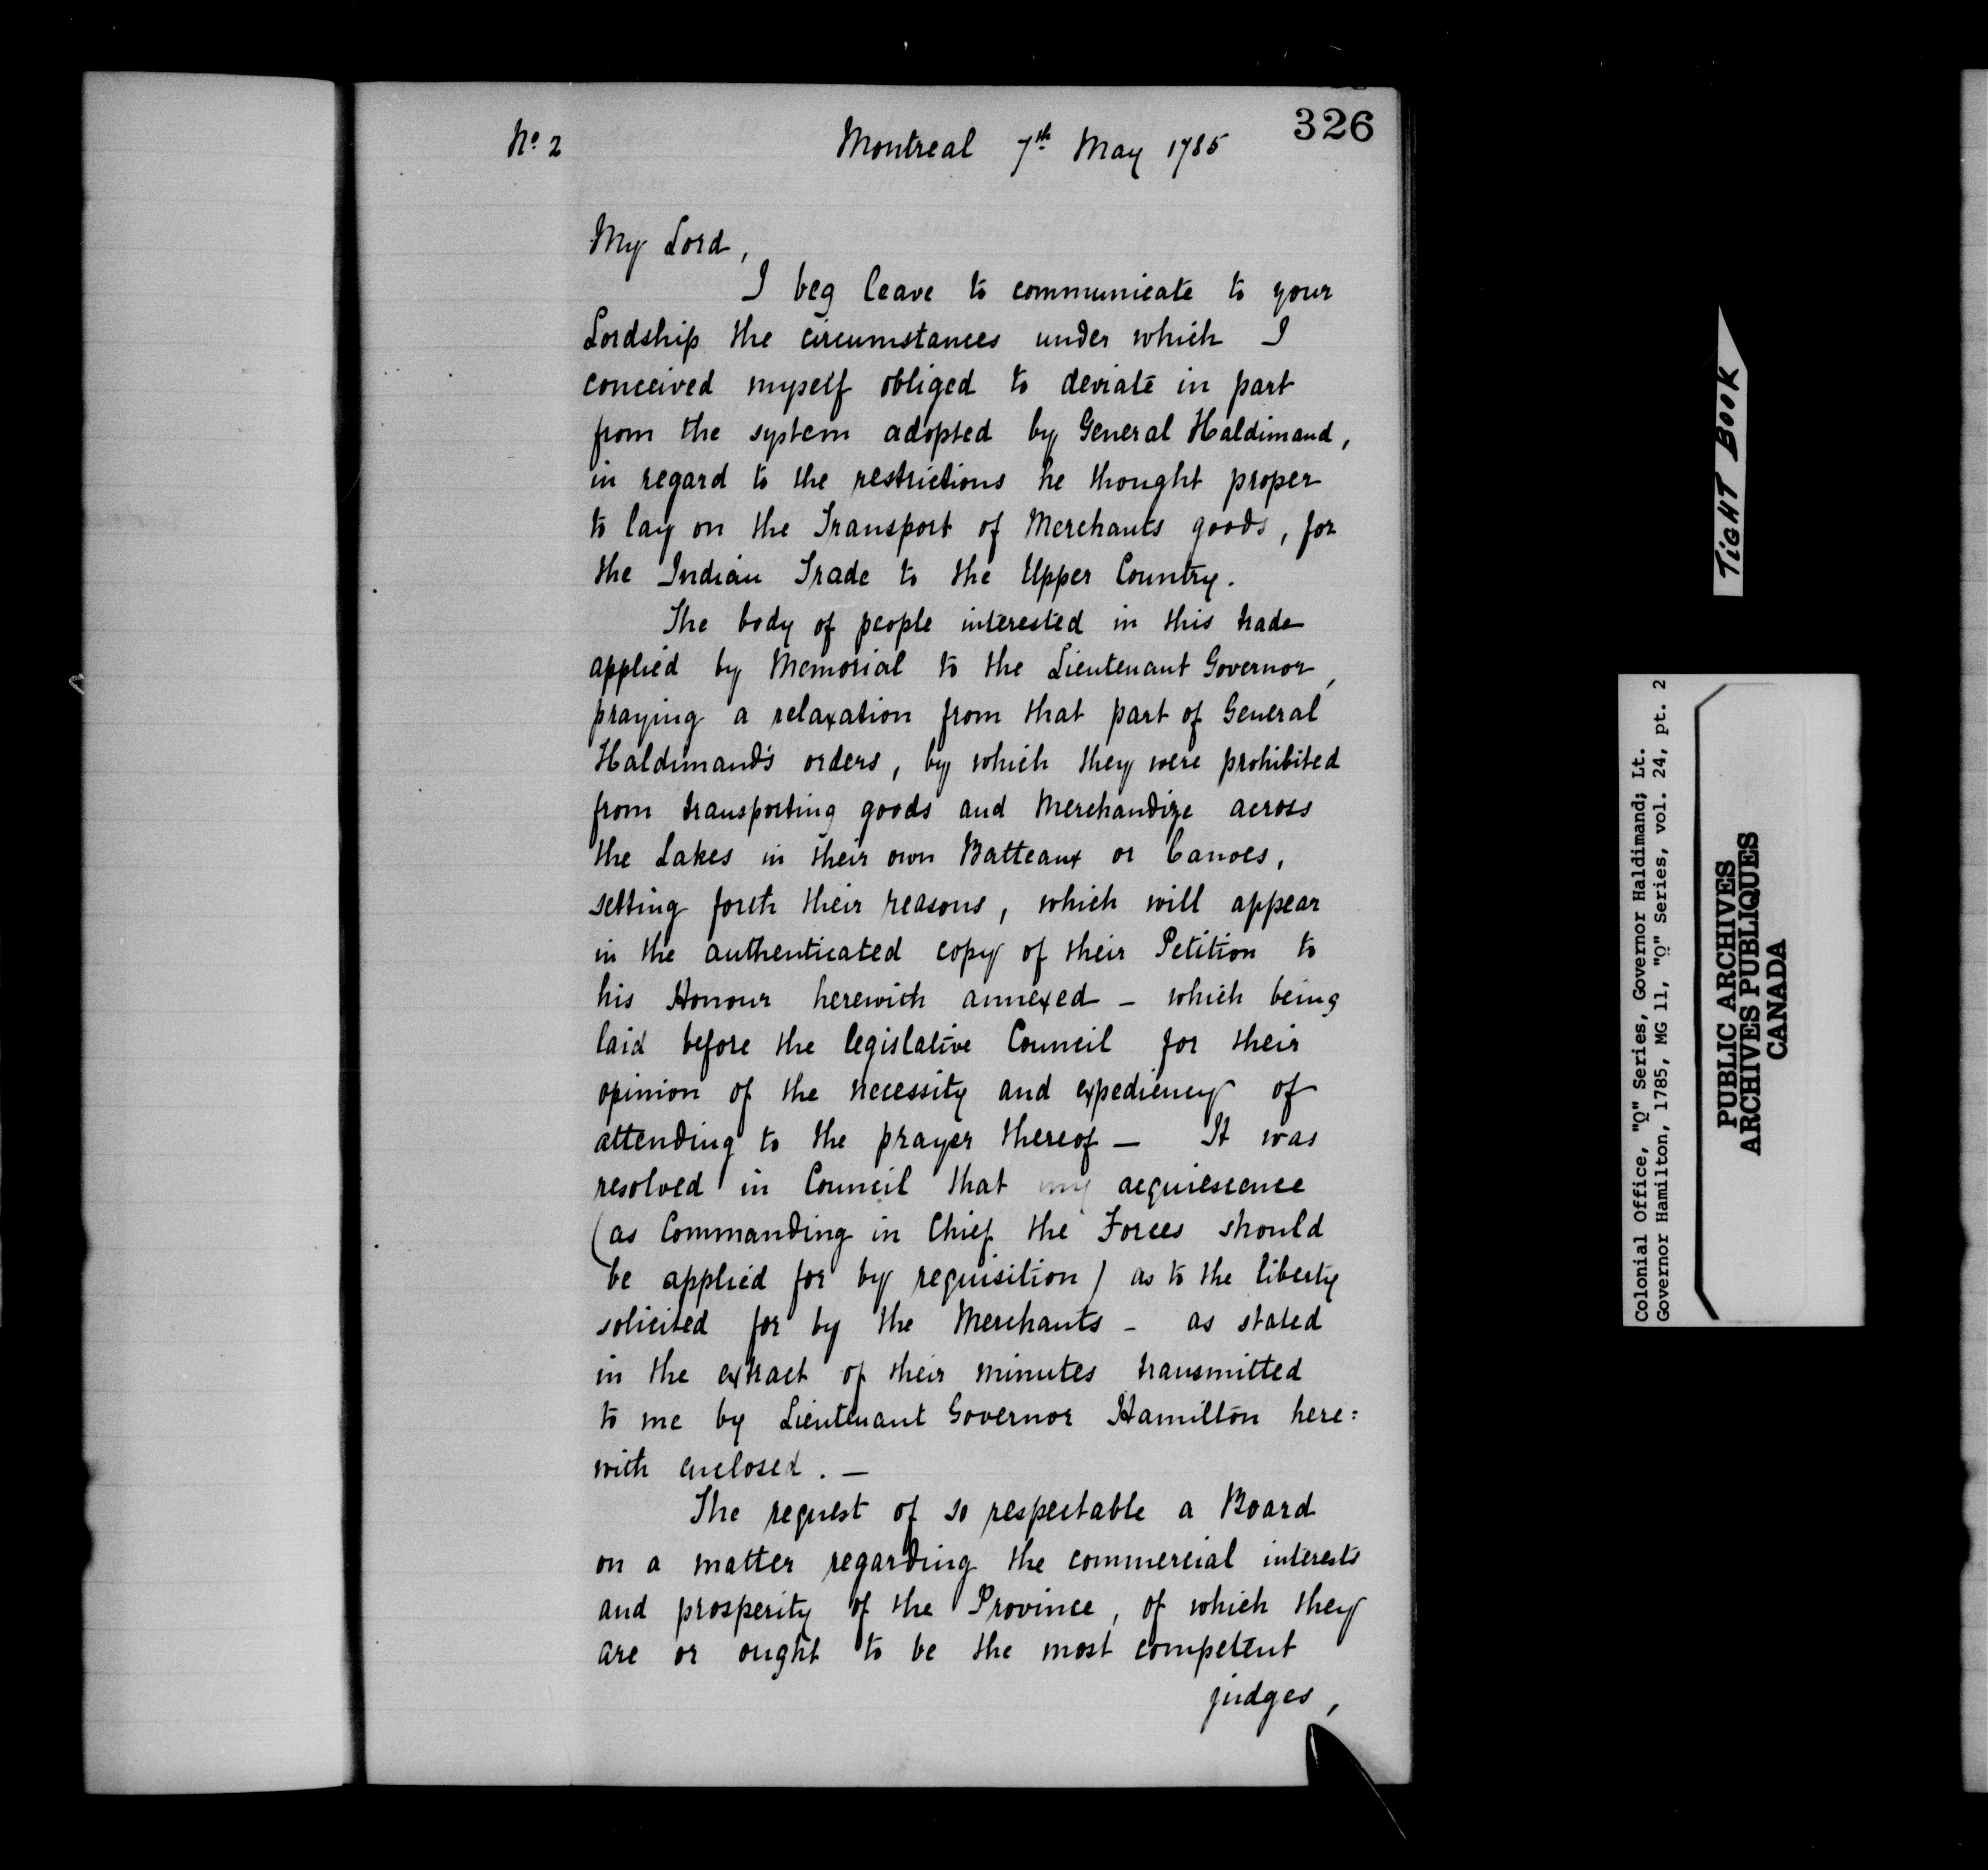 326
Nº 2 Montreal 7th May 1785
My Lord,
I beg leave to communicate to your
Lordship the circumstances under which I
conceived myself obliged to deviate in part
from the system adopted by General Haldimand,
in regard to the restrictions he thought proper
to lay on the Transport of Merchants goods, for
the Indian Trade to the Upper Country.
The body of people interested in this trade
applied by Memorial to the Lieutenant Governor,
praying a relaxation from that part of General
Haldimand's orders, by which they were prohibited
from transporting goods and Merchandize across
the Lakes in their own Batteaux or Canoes,
setting forth their reasons, which will appear
in the authenticated copy of their Petition to
his Honour herewith annexed - which being
laid before the legislative Council for their
opinion of the necessity and expediency of
attending to the prayer thereof — It was
resolved in Council that my acquiescence
(as Commanding in Chief the Forces should
be applied for by requisition) as to the liberty
solicited for by the Merchants - as stated
in the extract of their minutes transmitted
to me by Lieutenant Governor Hamilton here=
with enclosed. —
The request of so respectable a Board
on a matter regarding the commercial interests
and prosperity of the Province, of which they
are or ought to be the most competent
judges,
TIGHT BOOK
Colonial Office, "Q" Series, Governor Haldimand; Lt.
Governor Hamilton, 1785, MG 11, "Q" Series, vol. 24, pt. 2
PUBLIC ARCHIVES
ARCHIVES PUBLIQUES
CANADA